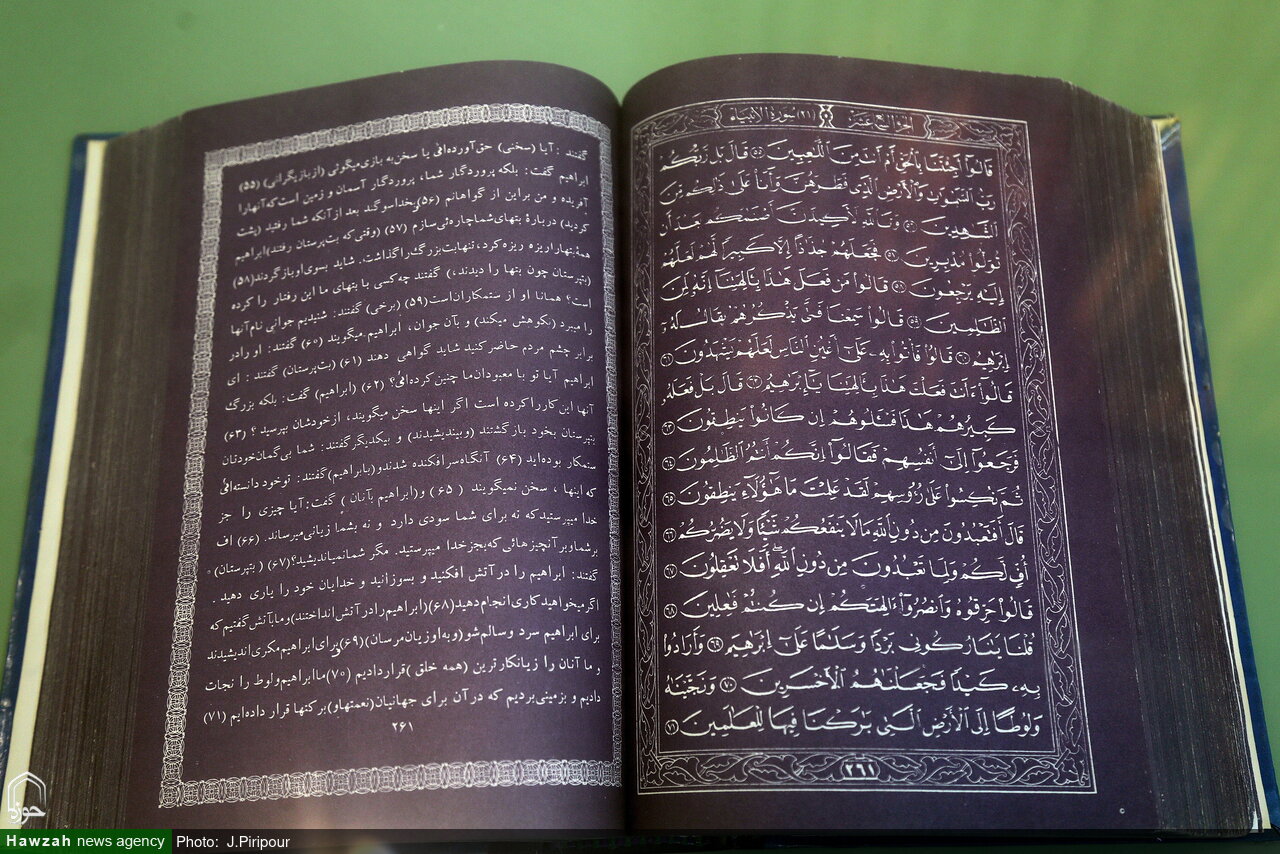 الجزء السابع عشر (٢١) سورة الأنبياء
قَالُوٓا۟ أَجِئْتَنَا بِٱلْحَقِّ أَمْ أَنتَ مِنَ ٱللَّٰعِبِينَ ٥٥ قَالَ بَل رَّبُّكُمْ
رَبُّ ٱلسَّمَٰوَٰتِ وَٱلْأَرْضِ ٱلَّذِى فَطَرَهُنَّ وَأَنَا۠ عَلَىٰ ذَٰلِكُم مِّنَ
ٱلشَّٰهِدِينَ ٥٦ وَتَٱللَّهِ لَأَكِيدَنَّ أَصْنَٰمَكُم بَعْدَ أَن
تُوَلُّوا۟ مُدْبِرِينَ ٥٧ فَجَعَلَهُمْ جُذَٰذًا إِلَّا كَبِيرًا لَّهُمْ لَعَلَّهُمْ
إِلَيْهِ يَرْجِعُونَ ٥٨ قَالُوا۟ مَن فَعَلَ هَٰذَا بِـَٔالِهَتِنَآ إِنَّهُۥ لَمِنَ
ٱلظَّٰلِمِينَ ٥٩ قَالُوا۟ سَمِعْنَا فَتًى يَذْكُرُهُمْ يُقَالُ لَهُۥٓ
إِبْرَٰهِيمُ ٦٠ قَالُوا۟ فَأْتُوا۟ بِهِۦ عَلَىٰٓ أَعْيُنِ ٱلنَّاسِ لَعَلَّهُمْ يَشْهَدُونَ ٦١
قَالُوٓا۟ ءَأَنتَ فَعَلْتَ هَٰذَا بِـَٔالِهَتِنَا يَٰٓإِبْرَٰهِيمُ ٦٢ قَالَ بَلْ فَعَلَهُۥ
كَبِيرُهُمْ هَٰذَا فَسْـَٔلُوهُمْ إِن كَانُوا۟ يَنطِقُونَ ٦٣
فَرَجَعُوٓا۟ إِلَىٰٓ أَنفُسِهِمْ فَقَالُوٓا۟ إِنَّكُمْ أَنتُمُ ٱلظَّٰلِمُونَ ٦٤
ثُمَّ نُكِسُوا۟ عَلَىٰ رُءُوسِهِمْ لَقَدْ عَلِمْتَ مَا هَٰٓؤُلَآءِ يَنطِقُونَ ٦٥
قَالَ أَفَتَعْبُدُونَ مِن دُونِ ٱللَّهِ مَا لَا يَنفَعُكُمْ شَيْـًٔا وَلَا يَضُرُّكُمْ ٦٦
أُفٍّ لَّكُمْ وَلِمَا تَعْبُدُونَ مِن دُونِ ٱللَّهِ أَفَلَا تَعْقِلُونَ ٦٧
قَالُوا۟ حَرِّقُوهُ وَٱنصُرُوٓا۟ ءَالِهَتَكُمْ إِن كُنتُمْ فَٰعِلِينَ ٦٨
قُلْنَا يَٰنَارُ كُونِى بَرْدًا وَسَلَٰمًا عَلَىٰٓ إِبْرَٰهِيمَ ٦٩ وَأَرَادُوا۟
بِهِۦ كَيْدًا فَجَعَلْنَٰهُمُ ٱلْأَخْسَرِينَ ٧٠ وَنَجَّيْنَٰهُ
وَلُوطًا إِلَى ٱلْأَرْضِ ٱلَّتِى بَٰرَكْنَا فِيهَا لِلْعَٰلَمِينَ ٧١
٢٦١
گفتند : آیا (سخنی) حق آورده‌ای یا سخن به بازی میگوئی (ازبازیگرانی) (۵۵)
ابراهیم گفت: بلکه پروردگار شما، پروردگار آسمان و زمین است که آنها را
آفریده و من براین از گواهانم (۵۶) بخدا سوگند بعد از آنکه شما رفتید (پشت
کردید) دربارهٔ بتهای شما چاره‌ئی سازم (۵۷) (وقتی که بت‌پرستان رفتند) ابراهیم
همهٔ بتها را ریزه ریزه کرد، تنها بت بزرگ را گذاشت. شاید بسوی او بازگردند (۵۸)
(بتپرستان چون بتها را دیدند،) گفتند چه کسی با بتهای ما این رفتار را کرده
است؟ همانا او از ستمکاران است (۵۹) (برخی) گفتند: شنیدیم جوانی نام آنها
را میبرد (نکوهش میکند) و بآن جوان، ابراهیم میگویند (۶۰) گفتند: او را در
برابر چشم مردم حاضر کنید شاید گواهی دهند (۶۱) (بت‌پرستان) گفتند : ای
ابراهیم آیا تو با معبودان ما چنین کرده‌ای؟ (۶۲) (ابراهیم) گفت: بلکه بزرگ
آنها این کار را کرده است اگر اینها سخن میگویند، از خودشان بپرسید ؟ (۶۳)
بتپرستان بخود بازگشتند (و بیندیشیدند) و بیکدیگر گفتند: شما بی‌گمان خودتان
ستمکار بوده‌اید (۶۴) آنگاه سرافکنده شدند و (بابراهیم) گفتند: تو خود دانسته‌ای
که اینها ، سخن نمیگویند (۶۵) و (ابراهیم بآنان) گفت: آیا چیزی را جز
خدا میپرستید که نه برای شما سودی دارد و نه بشما زیانی میرساند. (۶۶) اف
برشما و بر آنچیزهائی که بجز خدا میپرستید. مگر شما نمیاندیشید؟ (۶۷) (بتپرستان)
گفتند: ابراهیم را در آتش افکنید و بسوزانید و خدایان خود را یاری دهید .
اگر میخواهید کاری انجام دهید (۶۸) (ابراهیم را در آتش انداختند) و ما بآتش گفتیم که
برای ابراهیم سرد و سالم شو (و به او زیان مرسان) (۶۹) برای ابراهیم مکری اندیشیدند
و ما آنان را زیانکارترین (همه خلق) قرار دادیم (۷۰) ما ابراهیم و لوط را نجات
دادیم و بزمینی بردیم که در آن برای جهانیان (نعمتها و) برکتها قرار داده‌ایم (۷۱)
۲۶۱
حوزه
Hawzah news agency Photo: J.Piripour